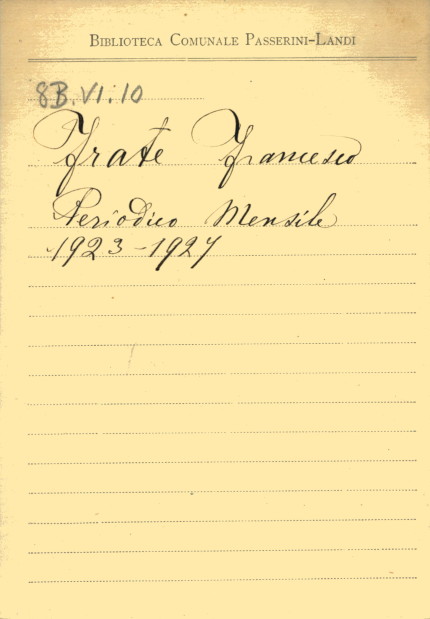 Biblioteca Comunale Passerini-Landi
8B.VI.10
Frate Francesco
Periodico Mensile
1923-1927